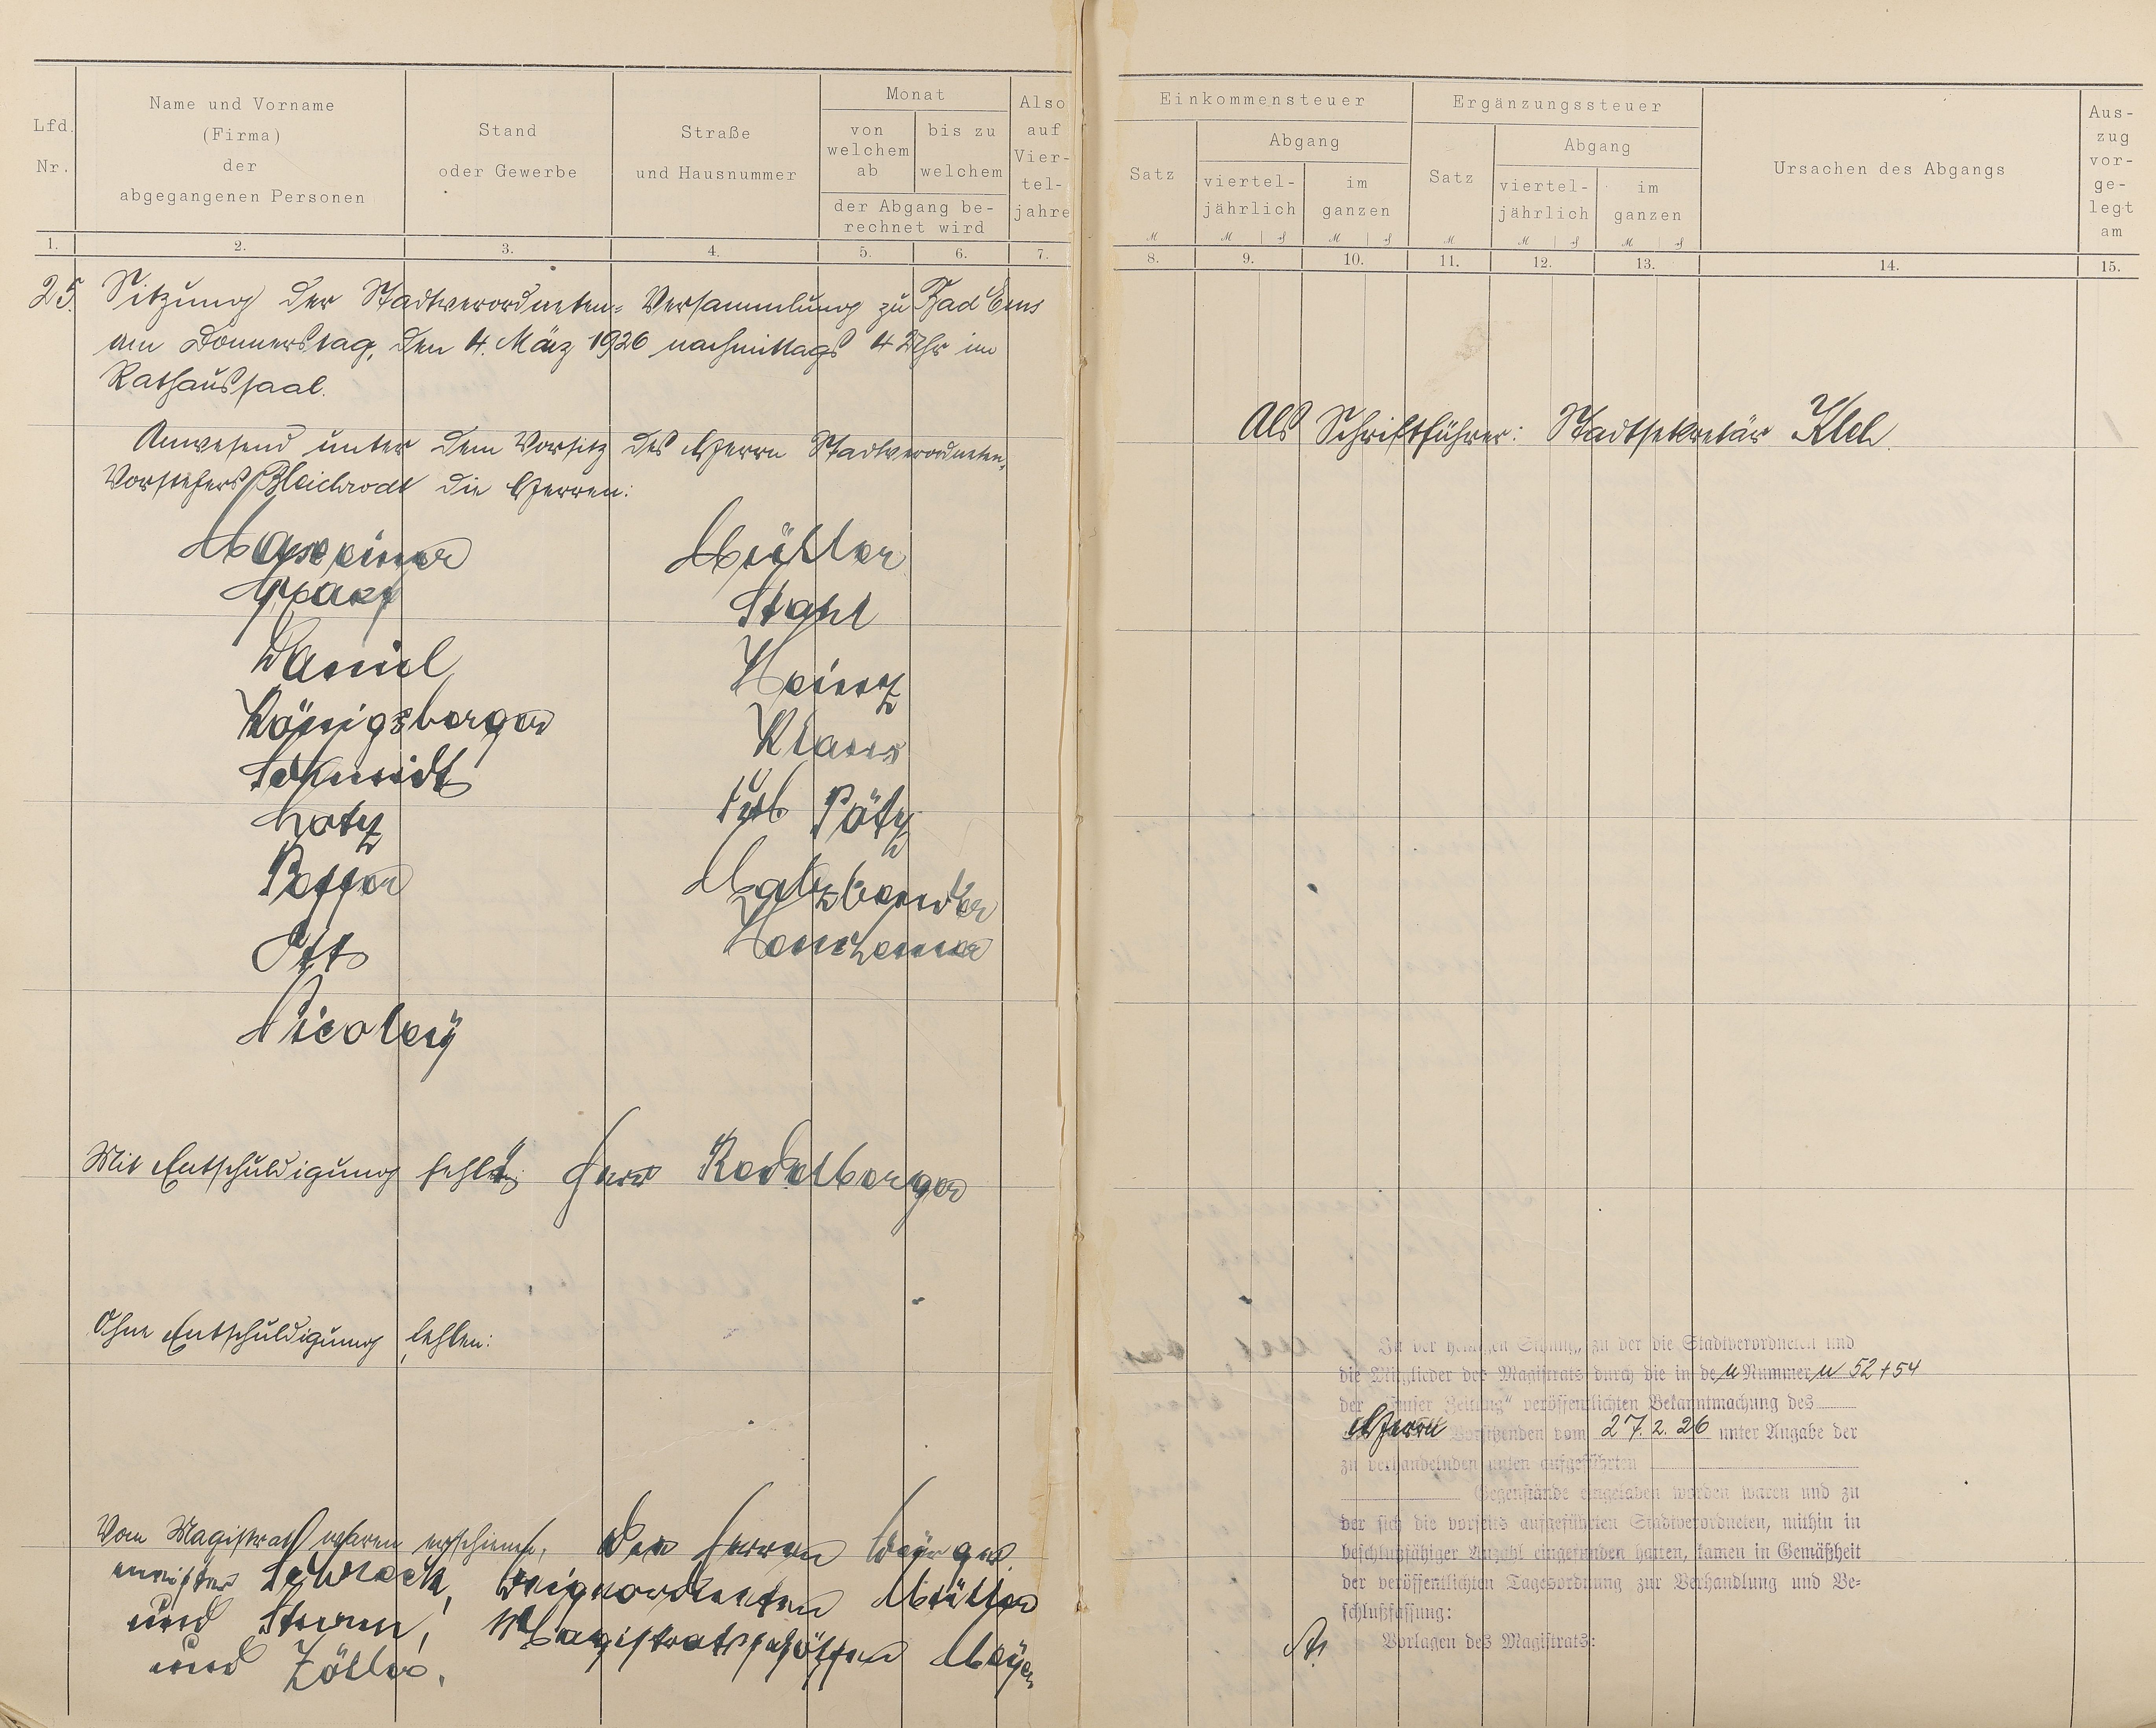 Lfd. Nr.
Name und Vorname (Firma) der abgegangenen Personen
Stand oder Gewerbe
Straße und Hausnummer
Monat
von welchem ab
bis zu welchem
der Abgang berechnet wird
Also auf Vier-tel-jahre
1. 2. 3. 4. 5. 6. 7.
25. Sitzung der Stadtverordneten-Versammlung zu Bad Ems
am Donnerstag, den 4. März 1926 nachmittags 4 Uhr im
Rathaussaal.
Anwesend unter dem Vorsitz des Herrn Stadtverordneten-
Vorstehers Bleichrodt die Herren:
Daniel
Königsberger
Schmidt
Lotz
Ott
Nicolay
Müller
Stahl
Heinz
Klaus
Mit Entschuldigung fehlt: Herr Rodelberger
Ohne Entschuldigung fehlen:
Vom Magistrat waren erschienen: Die Herren Bürger
meister Schreck, Beigeordneten Müller
und Sturm, Magistratsschöffen Meyer
und Zöller.
Einkommensteuer
Satz
Abgang
viertel-jährlich
im ganzen
Ergänzungssteuer
Satz
Abgang
viertel-jährlich
im ganzen
Ursachen des Abgangs
Aus-zug vor-ge-legt am
8. 9. 10. 11. 12. 13. 14. 15.
Als Schriftführer: Stadtsekretär
In der heutigen Sitzung, zu der die Stadtverordneten und
die Mitglieder des Magistrats durch die in den Nummern 52 + 54
der „Emser Zeitung“ veröffentlichten Bekanntmachung des
Herrn Vorsitzenden vom 27.2.26 unter Angabe der
zu verhandelnden unten aufgeführten
Gegenstände eingeladen worden waren und zu
der sich die vorseits aufgeführten Stadtverordneten, mithin in
beschlußfähiger Anzahl eingefunden hatten, kamen in Gemäßheit
der veröffentlichten Tagesordnung zur Verhandlung und Be-
schlußfassung:
A. Vorlagen des Magistrats: